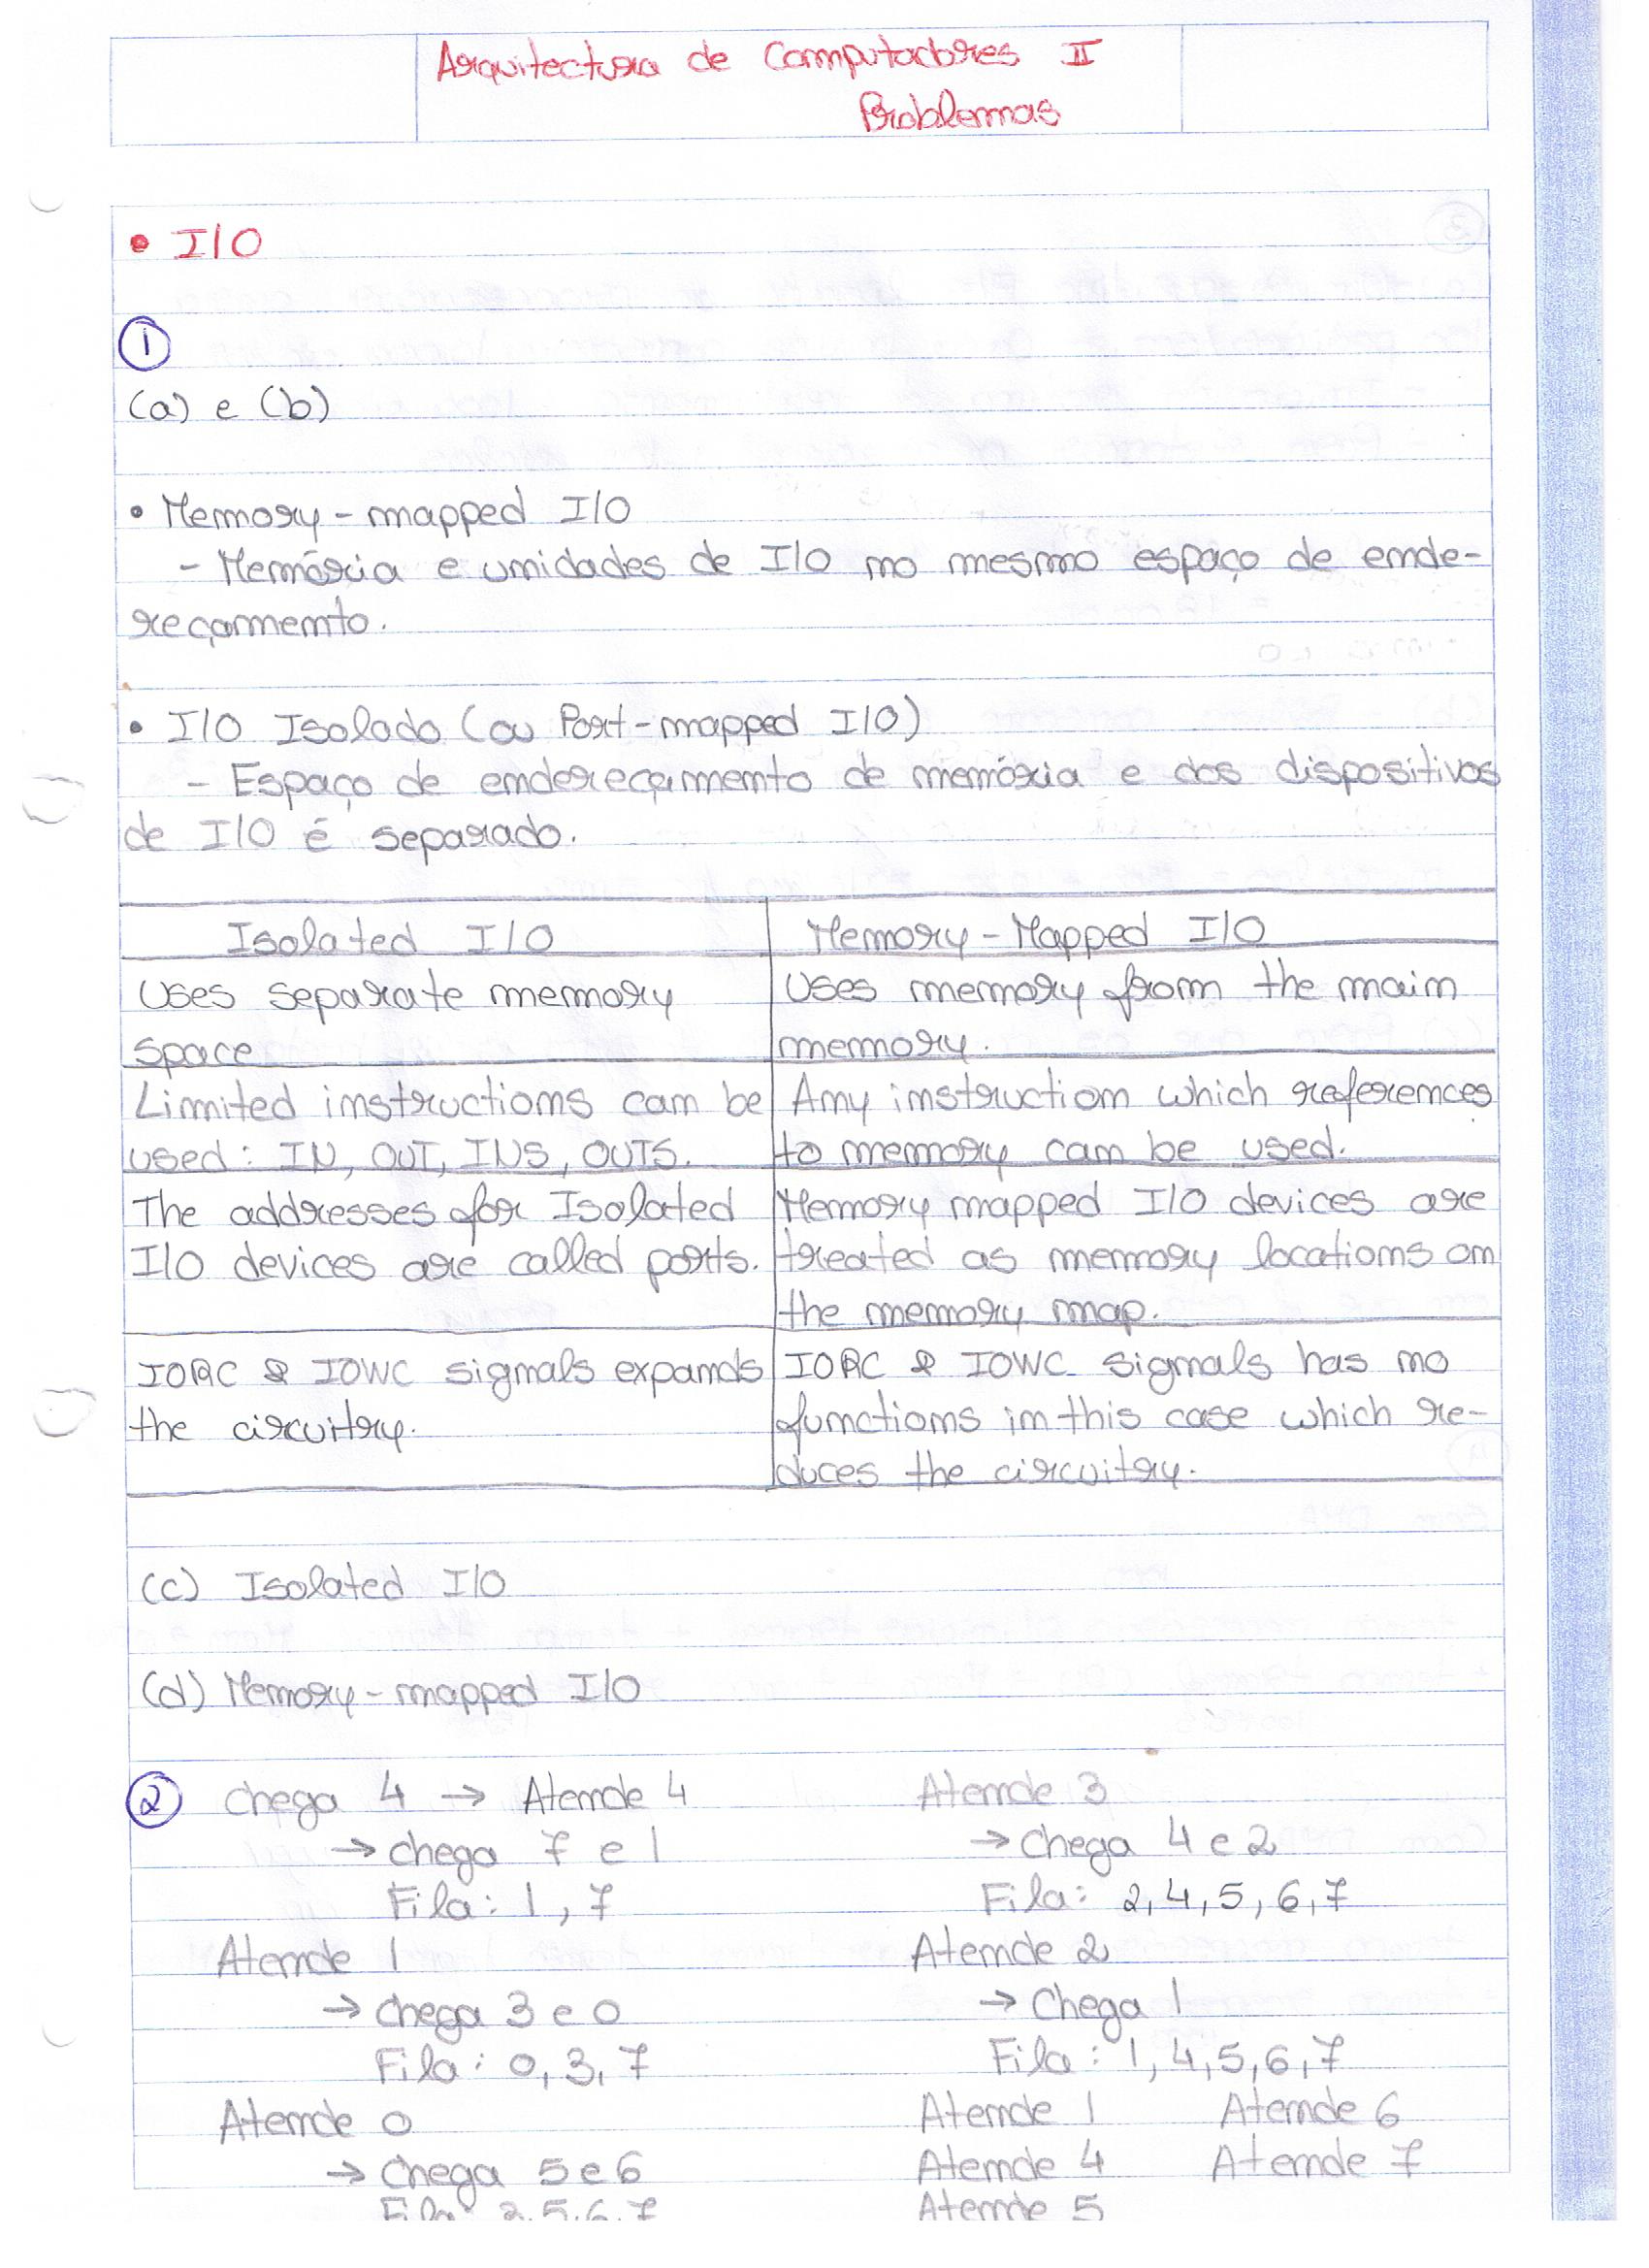 Arquitectura de Computadores II
Problemas
• I/O
1
(a) e (b)
• Memory-mapped I/O
- Memória e unidades de I/O no mesmo espaço de ende-
reçamento.
• I/O Isolado (ou Port-mapped I/O)
- Espaço de endereçamento de memória e dos dispositivos
de I/O é separado.
Isolated I/O
Memory-Mapped I/O
Uses separate memory
space
Uses memory from the main
memory.
Limited instructions can be
used: IN, OUT, INS, OUTS.
Any instruction which references
to memory can be used.
The addresses for Isolated
I/O devices are called ports.
Memory mapped I/O devices are
treated as memory locations on
the memory map.
IORC & IOWC signals expands
the circuitry.
IORC & IOWC signals has no
functions in this case which re-
duces the circuitry.
(c) Isolated I/O
(d) Memory-mapped I/O
2 Chega 4 → Atende 4
→ Chega 7 e 1
Fila: 1, 7
Atende 1
→ Chega 3 e 0
Fila: 0, 3, 7
Atende 0
→ Chega 5 e 6
Fila: 3, 5, 6, 7
Atende 3
→ Chega 4 e 2
Fila: 2, 4, 5, 6, 7
Atende 2
→ Chega 1
Fila: 1, 4, 5, 6, 7
Atende 1 Atende 6
Atende 4 Atende 7
Atende 5